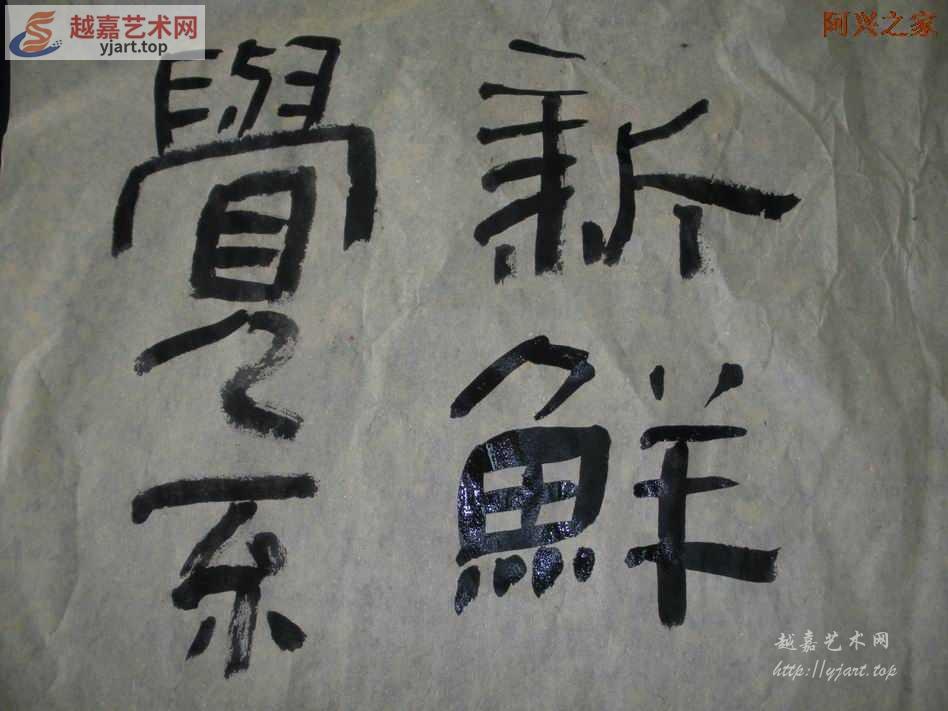 越嘉艺术网
yjart.top
阿兴之家
新鮮
覺系
越嘉艺术网
http://yjart.top